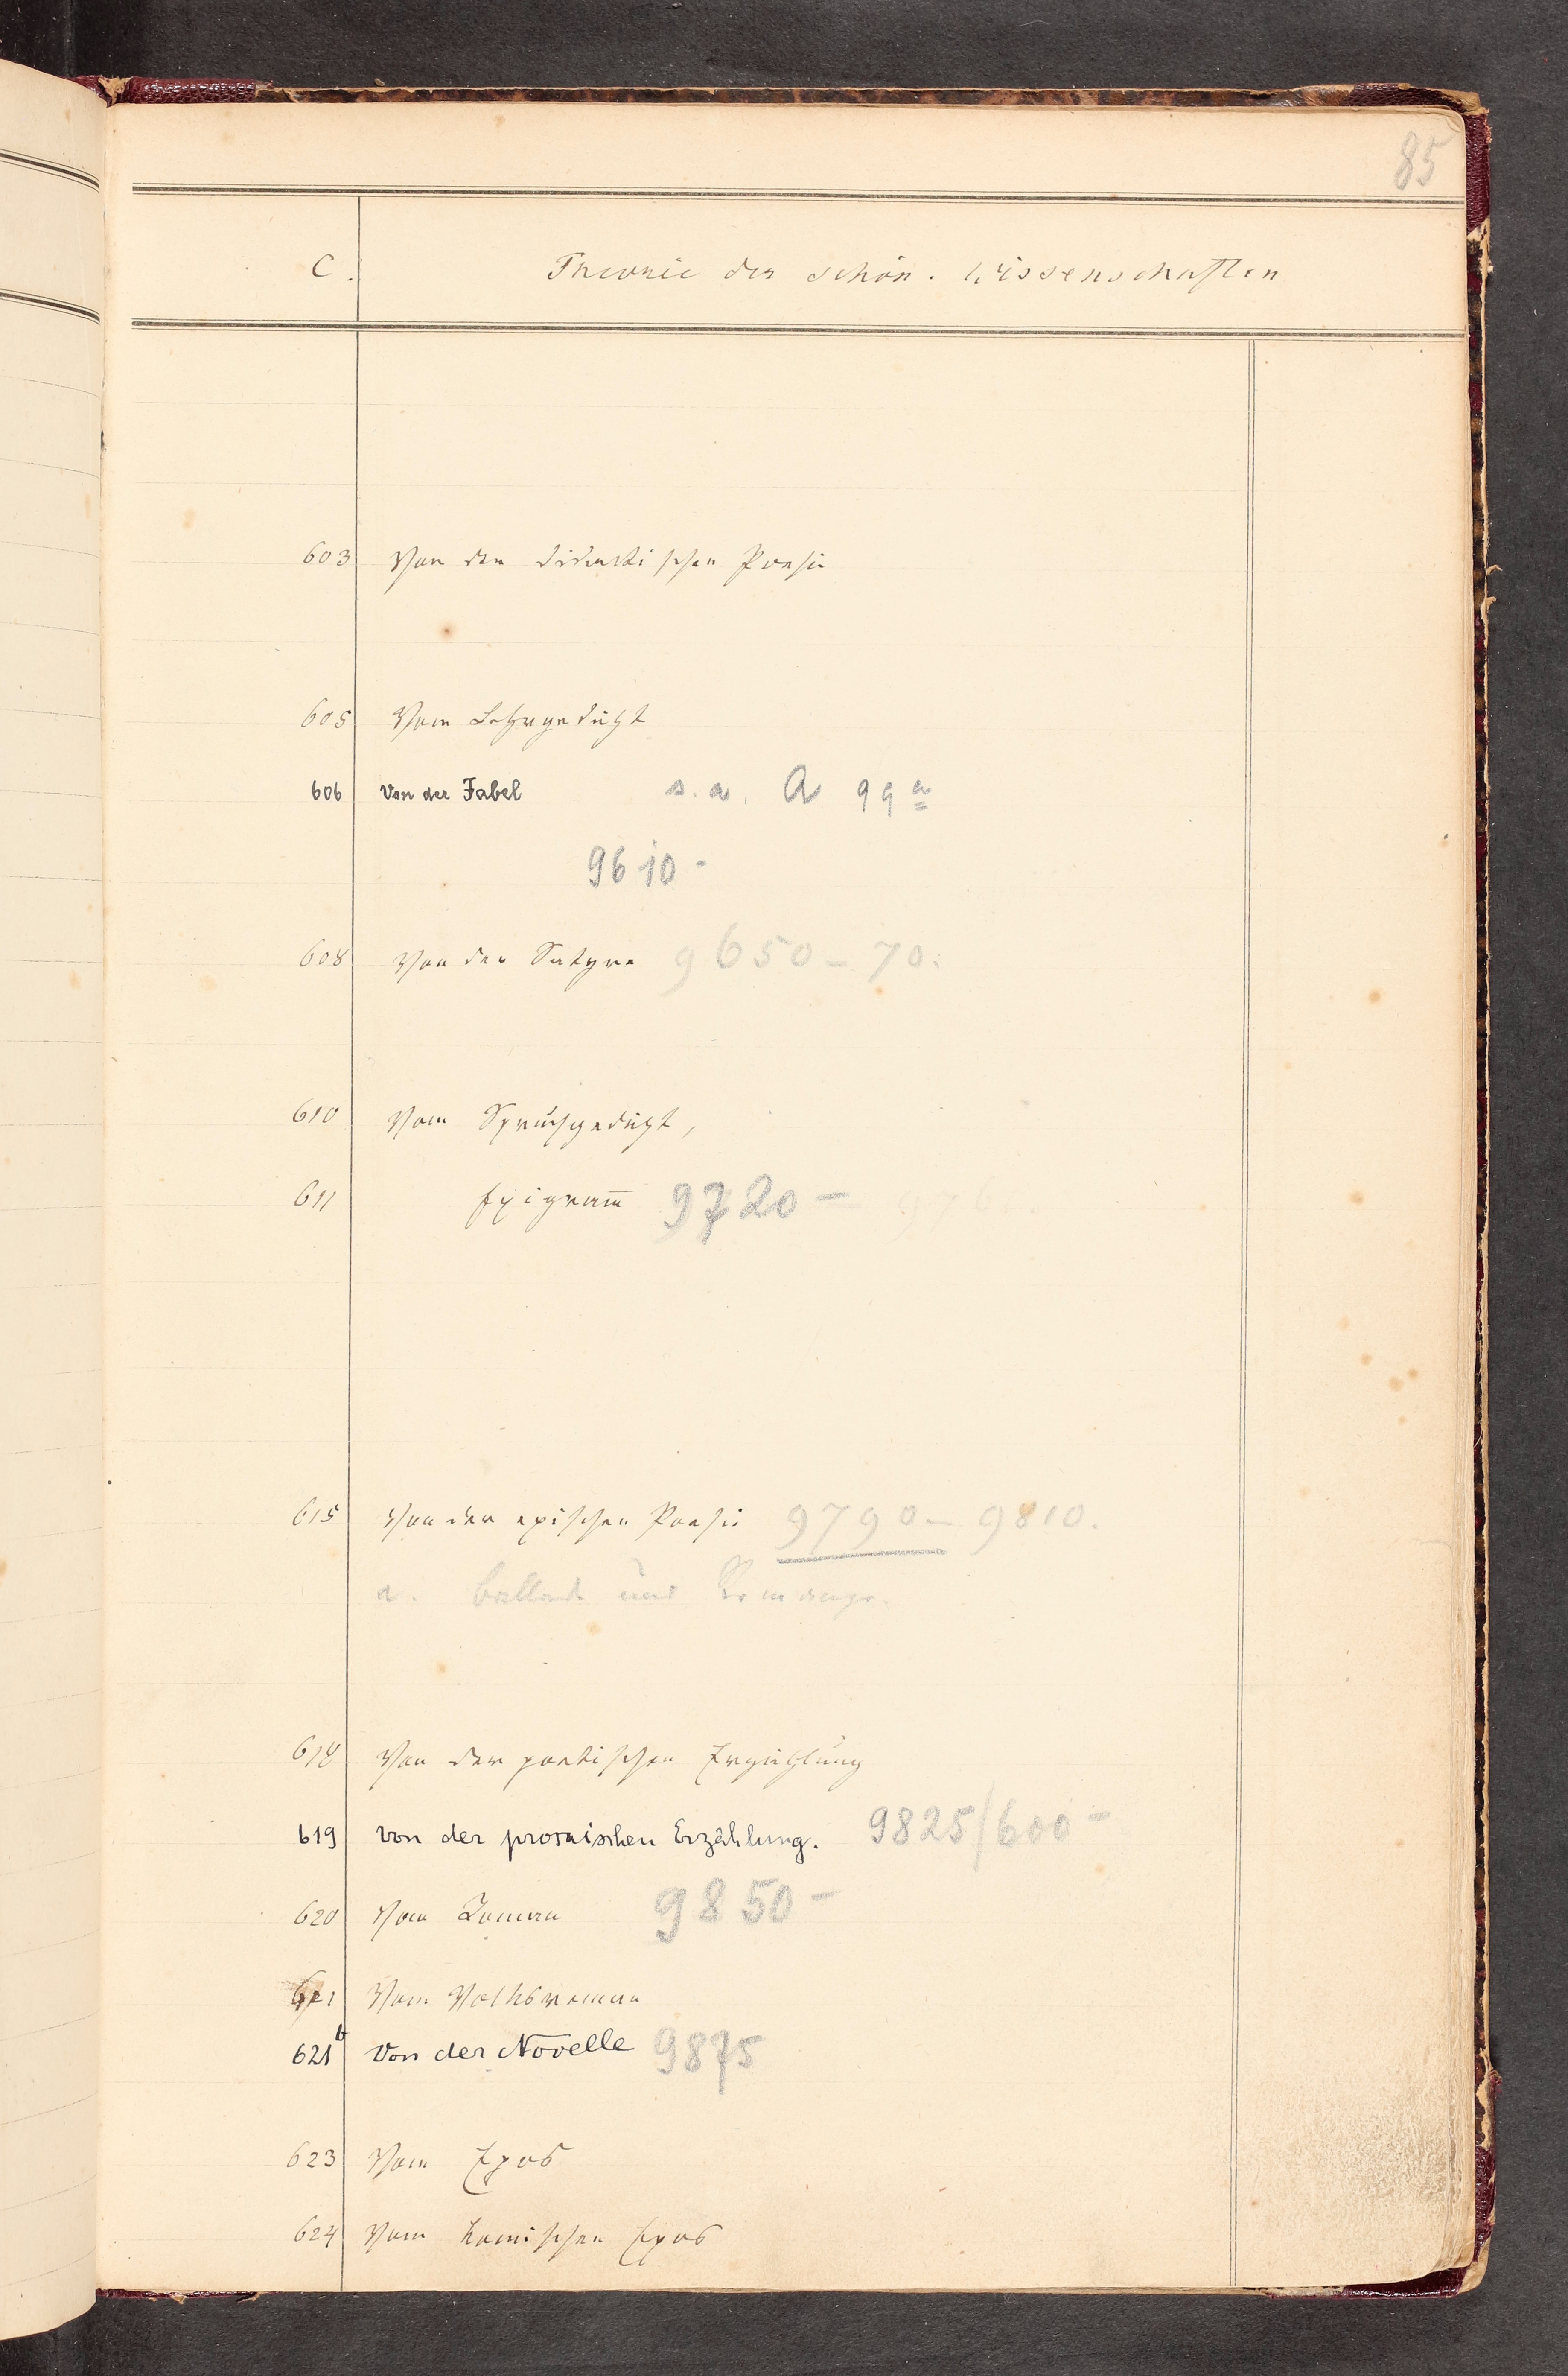 85
C. Theorie der schön. Wissenschaften
603 Von der didaktischen Poesie
605 Vom Lehrgedicht
606 Von der Fabel s. a. A 99 a
9610 -
608 Von der Satyre 9650 - 70.
610 Vom Spruchgedicht,
611 Epigram̅ 9720 -
615 Von der epischen Poesie 9790 - 9810.
a. Ballade und Romanze.
618 Von der poetischen Erzählung
619 von der prosaischen Erzählung. 9825/600 -
620 Vom Roman 9850 -
621 Vom Volksroman
621b Von der Novelle 9875
623 Vom Epos
624 Vom komischen Epos